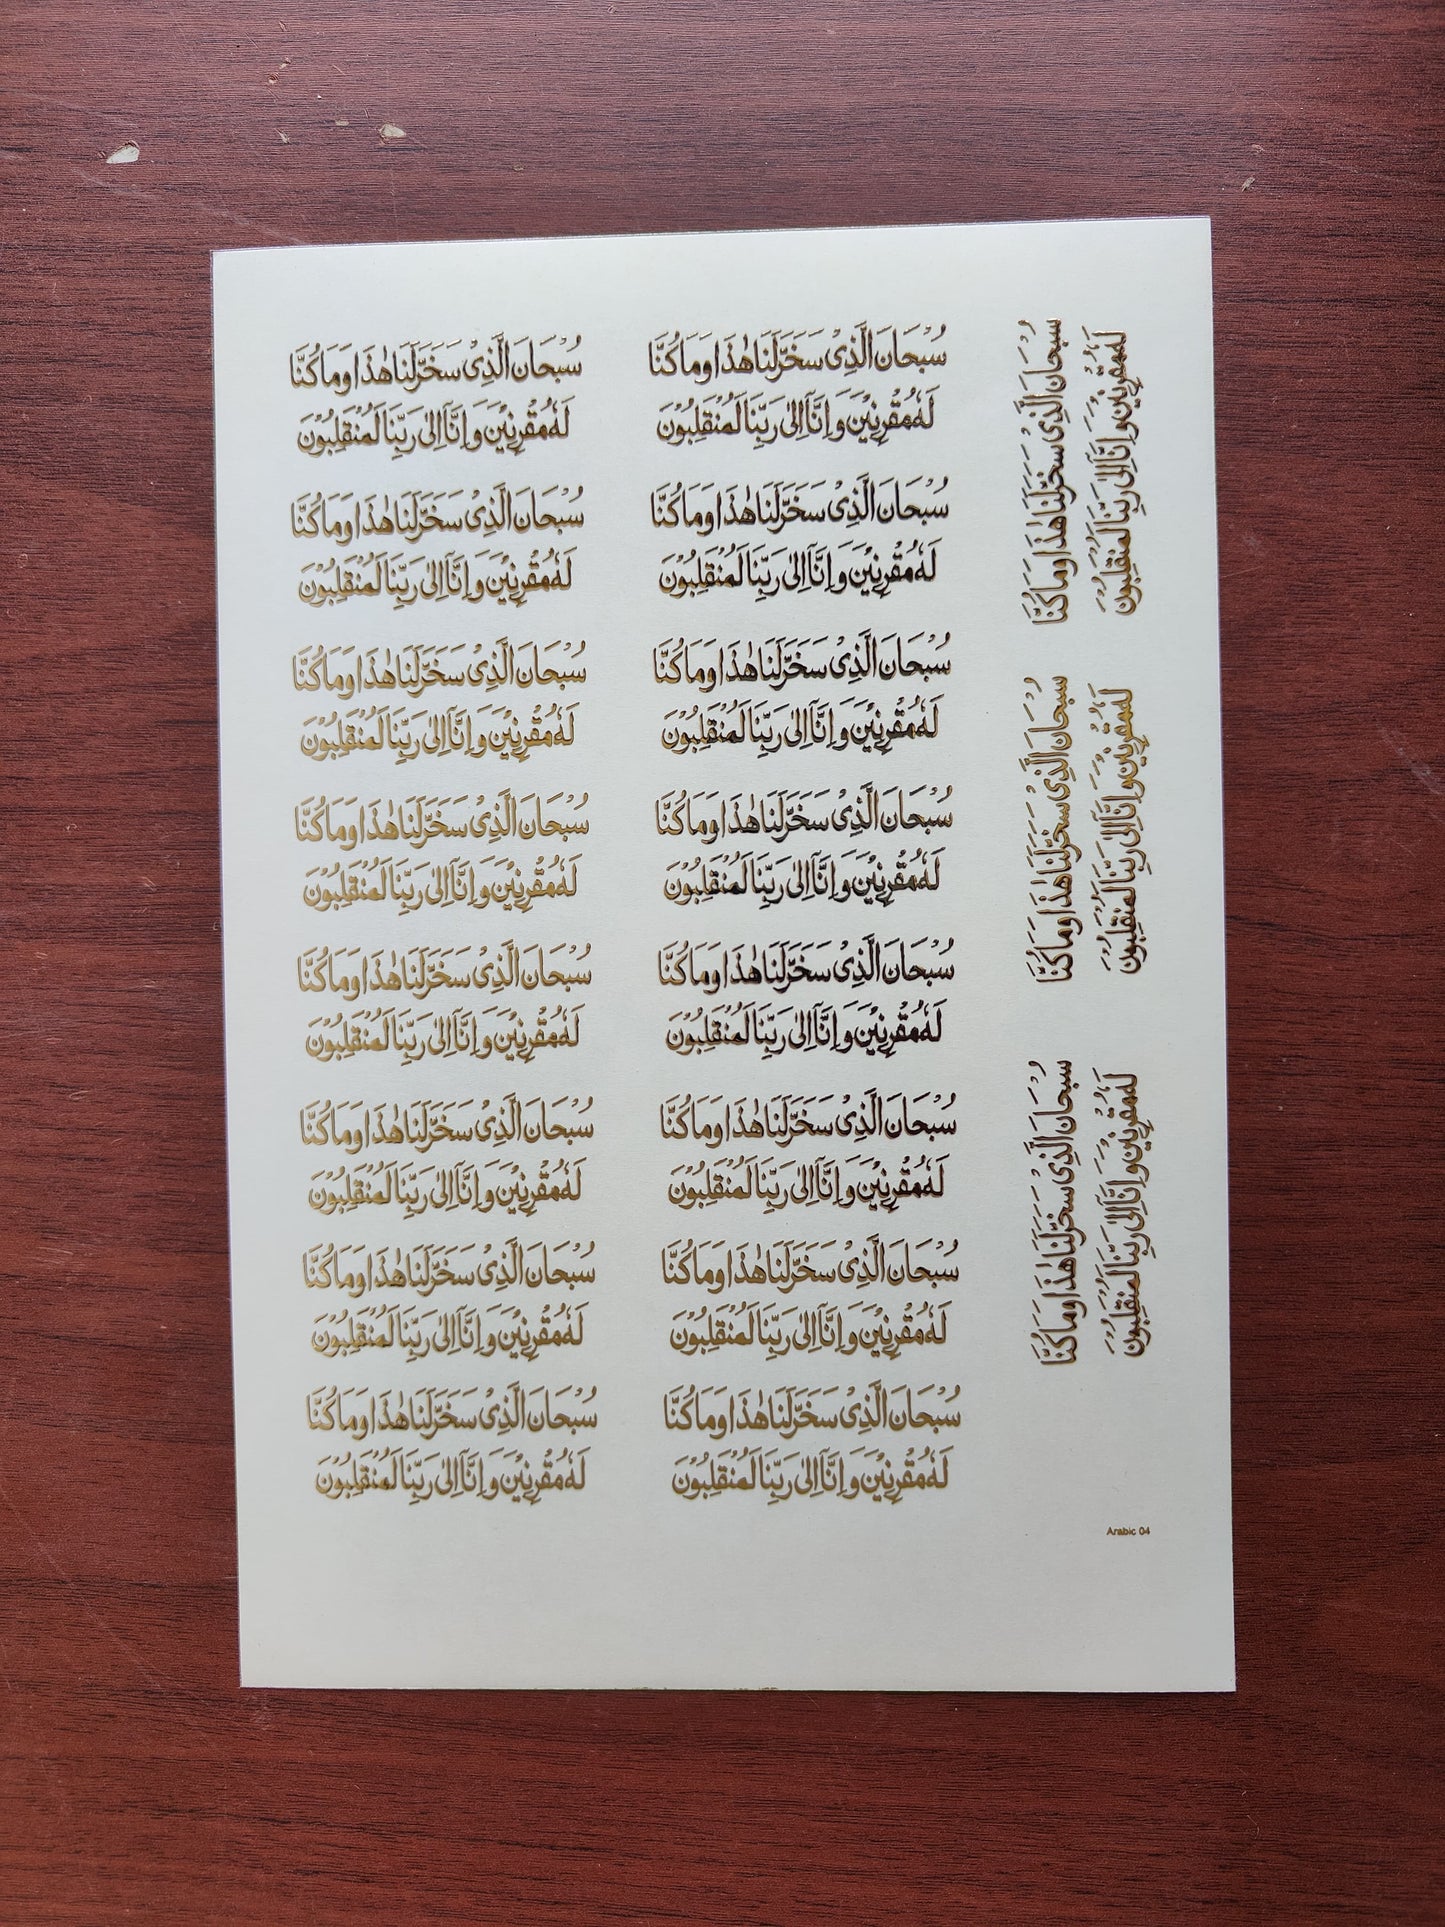 سُبْحَانَ الَّذِیْ سَخَّرَ لَنَا هٰذَا وَمَا كُنَّا
لَهٗ مُقْرِنِیْنَ وَ اِنَّآ اِلٰی رَبِّنَا لَمُنْقَلِبُوْنَ
سُبْحَانَ الَّذِیْ سَخَّرَ لَنَا هٰذَا وَمَا كُنَّا
لَهٗ مُقْرِنِیْنَ وَ اِنَّآ اِلٰی رَبِّنَا لَمُنْقَلِبُوْنَ
سُبْحَانَ الَّذِیْ سَخَّرَ لَنَا هٰذَا وَمَا كُنَّا
لَهٗ مُقْرِنِیْنَ وَ اِنَّآ اِلٰی رَبِّنَا لَمُنْقَلِبُوْنَ
سُبْحَانَ الَّذِیْ سَخَّرَ لَنَا هٰذَا وَمَا كُنَّا
لَهٗ مُقْرِنِیْنَ وَ اِنَّآ اِلٰی رَبِّنَا لَمُنْقَلِبُوْنَ
سُبْحَانَ الَّذِیْ سَخَّرَ لَنَا هٰذَا وَمَا كُنَّا
لَهٗ مُقْرِنِیْنَ وَ اِنَّآ اِلٰی رَبِّنَا لَمُنْقَلِبُوْنَ
سُبْحَانَ الَّذِیْ سَخَّرَ لَنَا هٰذَا وَمَا كُنَّا
لَهٗ مُقْرِنِیْنَ وَ اِنَّآ اِلٰی رَبِّنَا لَمُنْقَلِبُوْنَ
سُبْحَانَ الَّذِیْ سَخَّرَ لَنَا هٰذَا وَمَا كُنَّا
لَهٗ مُقْرِنِیْنَ وَ اِنَّآ اِلٰی رَبِّنَا لَمُنْقَلِبُوْنَ
سُبْحَانَ الَّذِیْ سَخَّرَ لَنَا هٰذَا وَمَا كُنَّا
لَهٗ مُقْرِنِیْنَ وَ اِنَّآ اِلٰی رَبِّنَا لَمُنْقَلِبُوْنَ
سُبْحَانَ الَّذِیْ سَخَّرَ لَنَا هٰذَا وَمَا كُنَّا
لَهٗ مُقْرِنِیْنَ وَ اِنَّآ اِلٰی رَبِّنَا لَمُنْقَلِبُوْنَ
سُبْحَانَ الَّذِیْ سَخَّرَ لَنَا هٰذَا وَمَا كُنَّا
لَهٗ مُقْرِنِیْنَ وَ اِنَّآ اِلٰی رَبِّنَا لَمُنْقَلِبُوْنَ
سُبْحَانَ الَّذِیْ سَخَّرَ لَنَا هٰذَا وَمَا كُنَّا
لَهٗ مُقْرِنِیْنَ وَ اِنَّآ اِلٰی رَبِّنَا لَمُنْقَلِبُوْنَ
سُبْحَانَ الَّذِیْ سَخَّرَ لَنَا هٰذَا وَمَا كُنَّا
لَهٗ مُقْرِنِیْنَ وَ اِنَّآ اِلٰی رَبِّنَا لَمُنْقَلِبُوْنَ
سُبْحَانَ الَّذِیْ سَخَّرَ لَنَا هٰذَا وَمَا كُنَّا
لَهٗ مُقْرِنِیْنَ وَ اِنَّآ اِلٰی رَبِّنَا لَمُنْقَلِبُوْنَ
سُبْحَانَ الَّذِیْ سَخَّرَ لَنَا هٰذَا وَمَا كُنَّا
لَهٗ مُقْرِنِیْنَ وَ اِنَّآ اِلٰی رَبِّنَا لَمُنْقَلِبُوْنَ
سُبْحَانَ الَّذِیْ سَخَّرَ لَنَا هٰذَا وَمَا كُنَّا
لَهٗ مُقْرِنِیْنَ وَ اِنَّآ اِلٰی رَبِّنَا لَمُنْقَلِبُوْنَ
سُبْحَانَ الَّذِیْ سَخَّرَ لَنَا هٰذَا وَمَا كُنَّا
لَهٗ مُقْرِنِیْنَ وَ اِنَّآ اِلٰی رَبِّنَا لَمُنْقَلِبُوْنَ
سُبْحَانَ الَّذِیْ سَخَّرَ لَنَا هٰذَا وَمَا كُنَّا
لَهٗ مُقْرِنِیْنَ وَ اِنَّآ اِلٰی رَبِّنَا لَمُنْقَلِبُوْنَ
سُبْحَانَ الَّذِیْ سَخَّرَ لَنَا هٰذَا وَمَا كُنَّا
لَهٗ مُقْرِنِیْنَ وَ اِنَّآ اِلٰی رَبِّنَا لَمُنْقَلِبُوْنَ
سُبْحَانَ الَّذِیْ سَخَّرَ لَنَا هٰذَا وَمَا كُنَّا
لَهٗ مُقْرِنِیْنَ وَ اِنَّآ اِلٰی رَبِّنَا لَمُنْقَلِبُوْنَ
Arabic 04